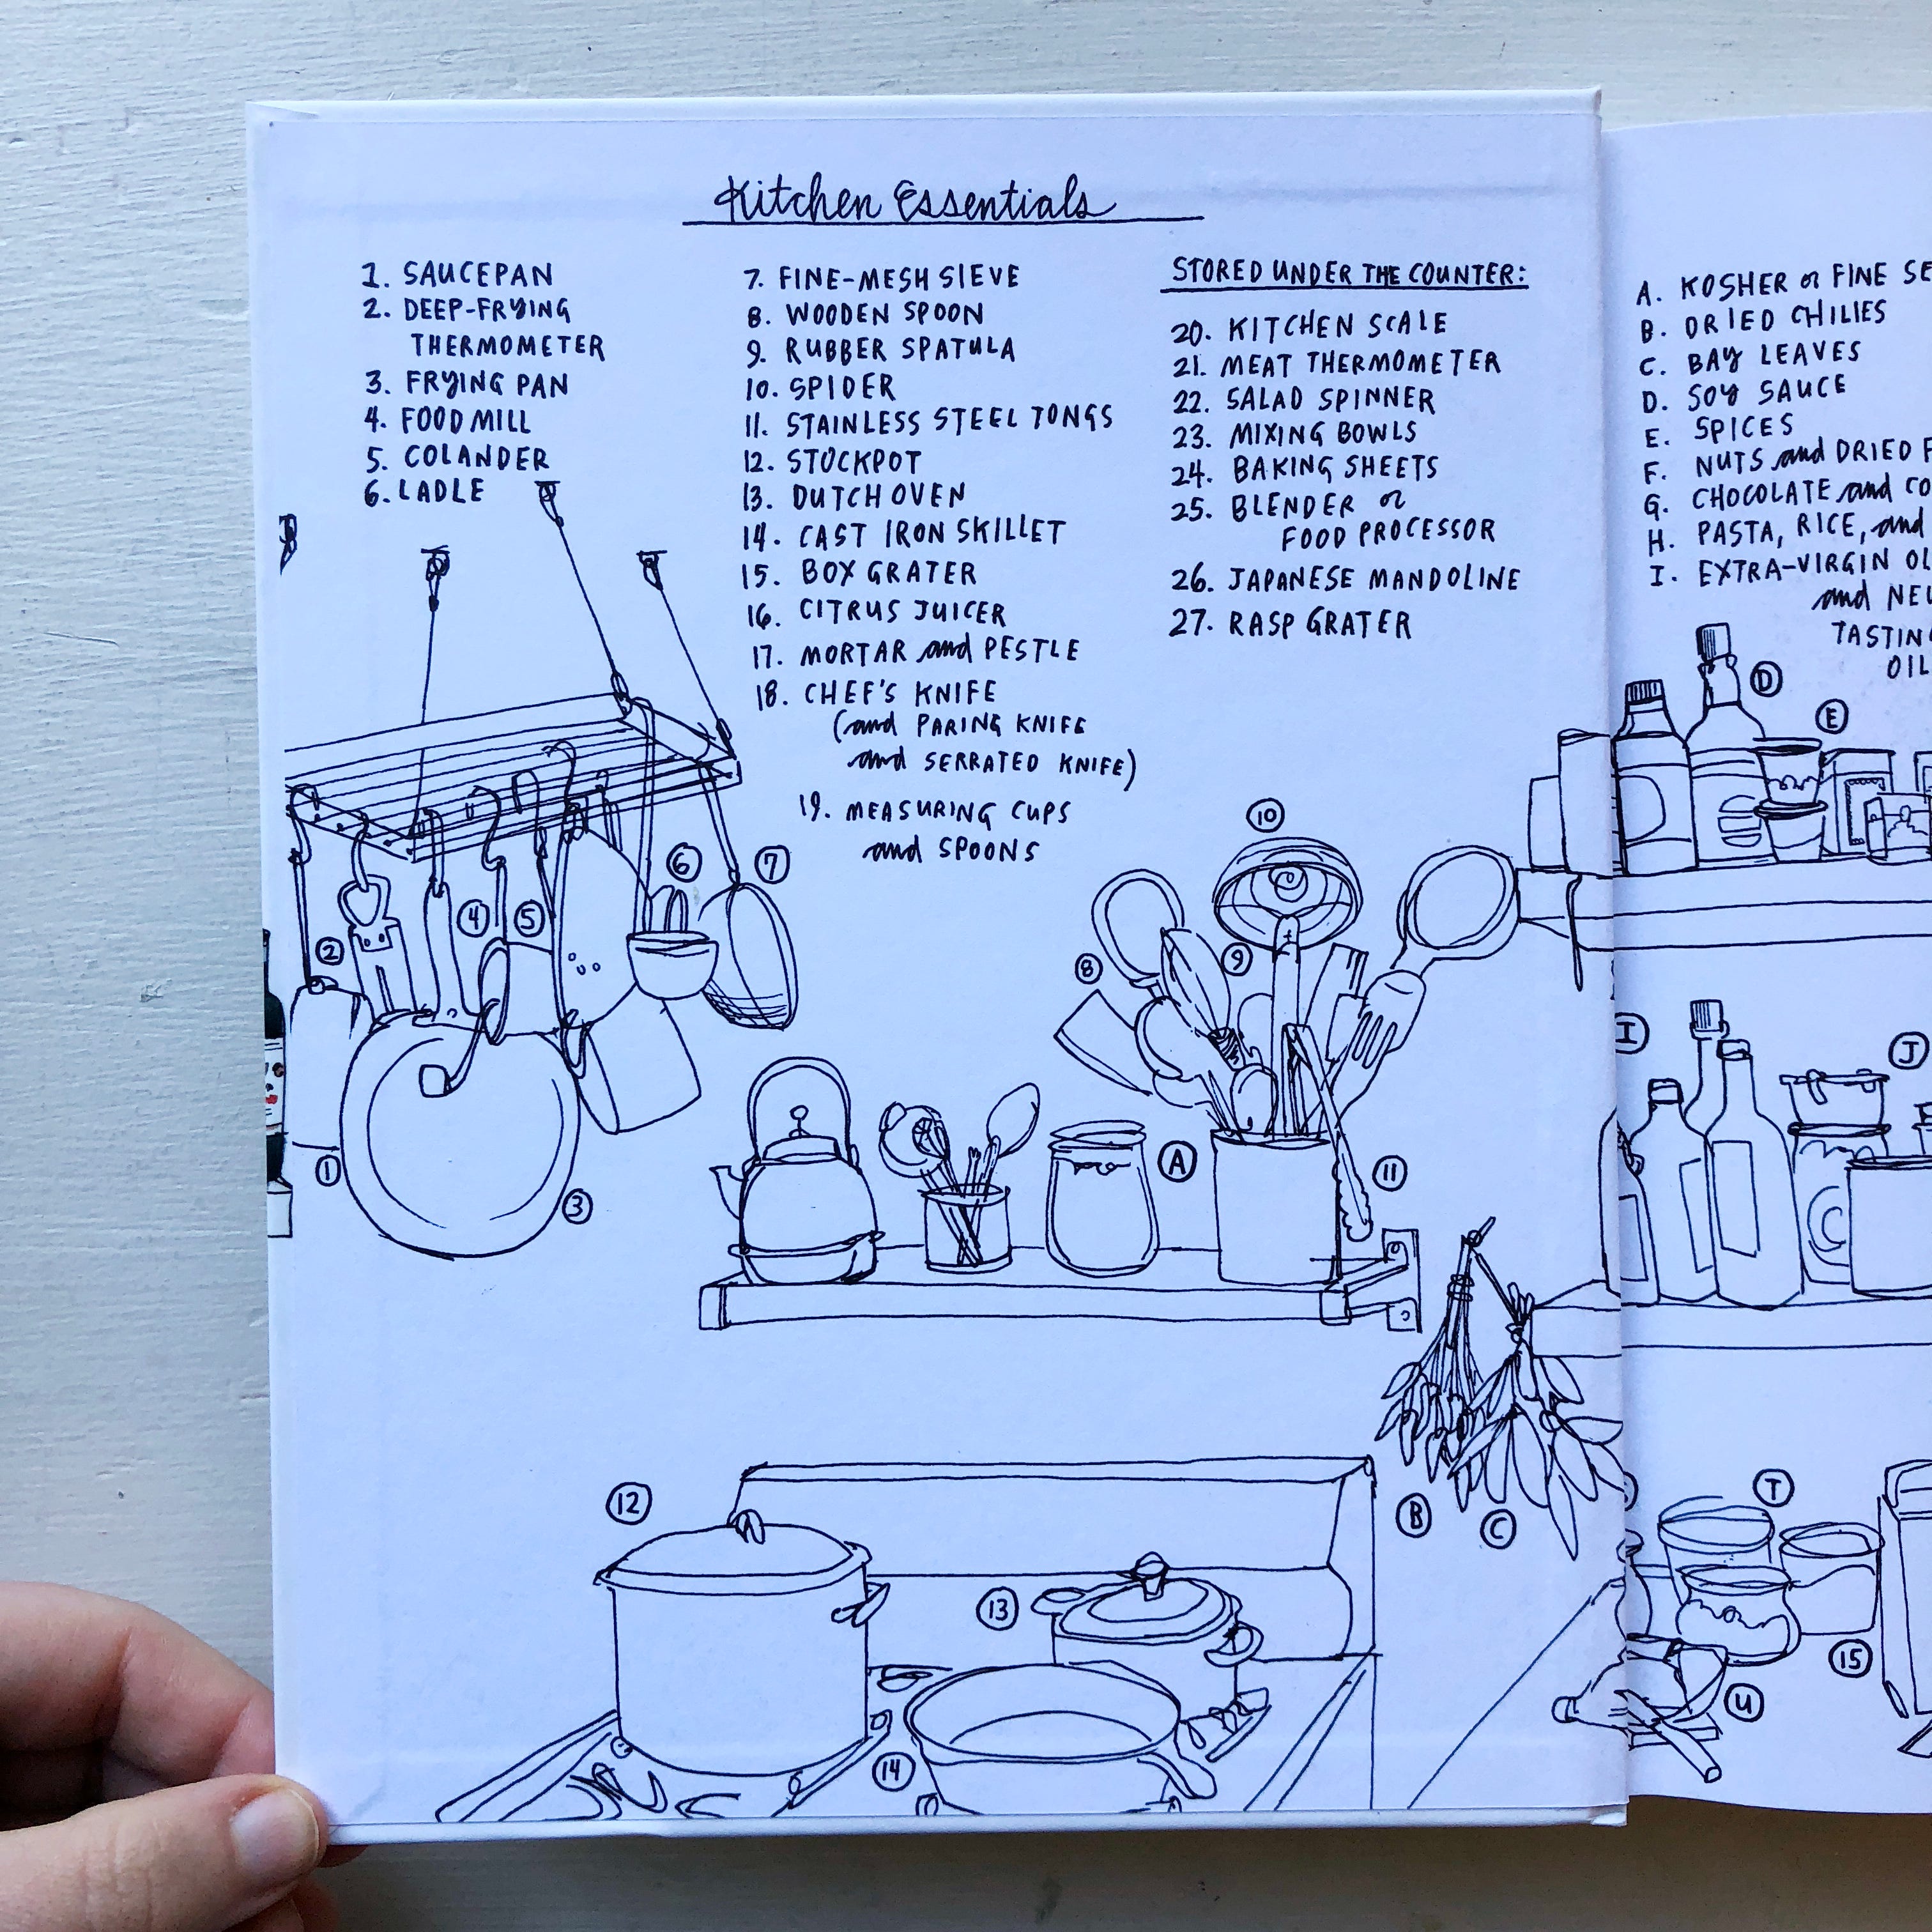 Kitchen Essentials
1. SAUCEPAN
2. DEEP-FRYING
THERMOMETER
3. FRYING PAN
4. FOOD MILL
5. COLANDER
6. LADLE
7. FINE-MESH SIEVE
8. WOODEN SPOON
9. RUBBER SPATULA
10. SPIDER
11. STAINLESS STEEL TONGS
12. STOCKPOT
13. DUTCH OVEN
14. CAST IRON SKILLET
15. BOX GRATER
16. CITRUS JUICER
17. MORTAR and PESTLE
18. CHEF'S KNIFE
(and PARING KNIFE
and SERRATED KNIFE)
19. MEASURING CUPS
and SPOONS
STORED UNDER THE COUNTER:
20. KITCHEN SCALE
21. MEAT THERMOMETER
22. SALAD SPINNER
23. MIXING BOWLS
24. BAKING SHEETS
25. BLENDER or
FOOD PROCESSOR
26. JAPANESE MANDOLINE
27. RASP GRATER
A. KOSHER or FINE SE
B. DRIED CHILIES
C. BAY LEAVES
D. SOY SAUCE
E. SPICES
F. NUTS and DRIED F
G. CHOCOLATE and CO
H. PASTA, RICE, and
I. EXTRA-VIRGIN OL
and NEU
TASTING
OIL
D
E
10
6
7
4
5
2
8
9
I
J
1
3
A
11
12
B
C
T
13
15
U
14